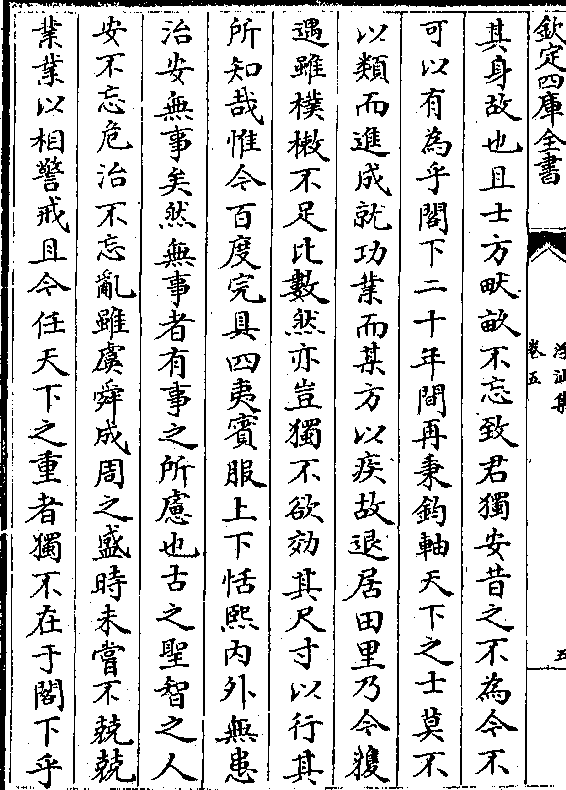 欽定四庫全書
卷五
五
其身故也且士方畎畝不忘致君獨安昔之不為今不
可以有為乎閣下二十年間再秉鈞軸天下之士莫不
以類而進成就功業而某方以疾故退居田里乃今獲
遇雖樸樕不足比數然亦豈獨不欲効其尺寸以行其
所知哉惟今百度完具四夷賓服上下恬熙内外無患
治安無事矣然無事者有事之所慮也古之聖智之人
安不忘危治不忘亂雖虞舜成周之盛時未嘗不兢兢
業業以相警戒且今任天下之重者獨不在于閣下乎